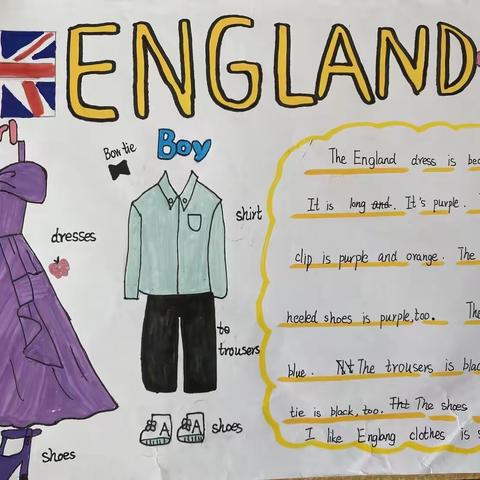 ENGLAND
rl
Boy
Bow tie
shirt
dresses
to
trousers
shoes
shoes
A A
The England dress is be
It is long and. It's purple.
clip is purple and orange. The
heeled shoes is purple,too. The
blue. The trousers is blac
tie is black, too. The shoes
I like Englang clothes is s